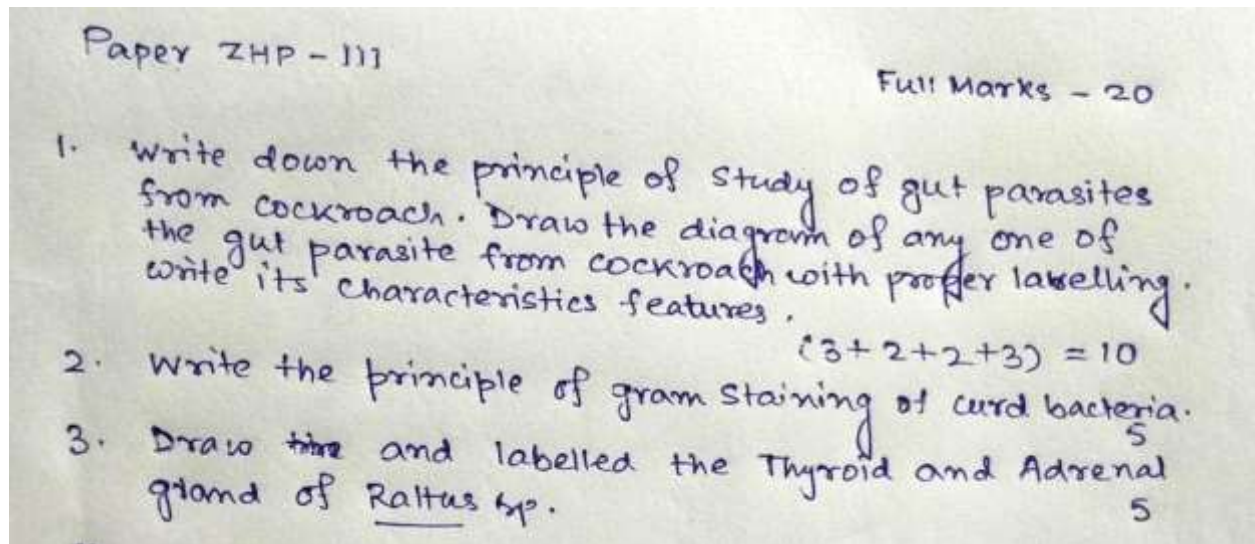 Paper ZHP - III
Full Marks - 20
1. Write down the principle of study of gut parasites
from cockroach. Draw the diagram of any one of
the gut parasite from cockroach with proper labelling.
write its characteristics features.
(3+2+2+3) = 10
2. Write the principle of gram staining of curd bacteria.
5
3. Draw and labelled the Thyroid and Adrenal
gland of Rattus sp.
5